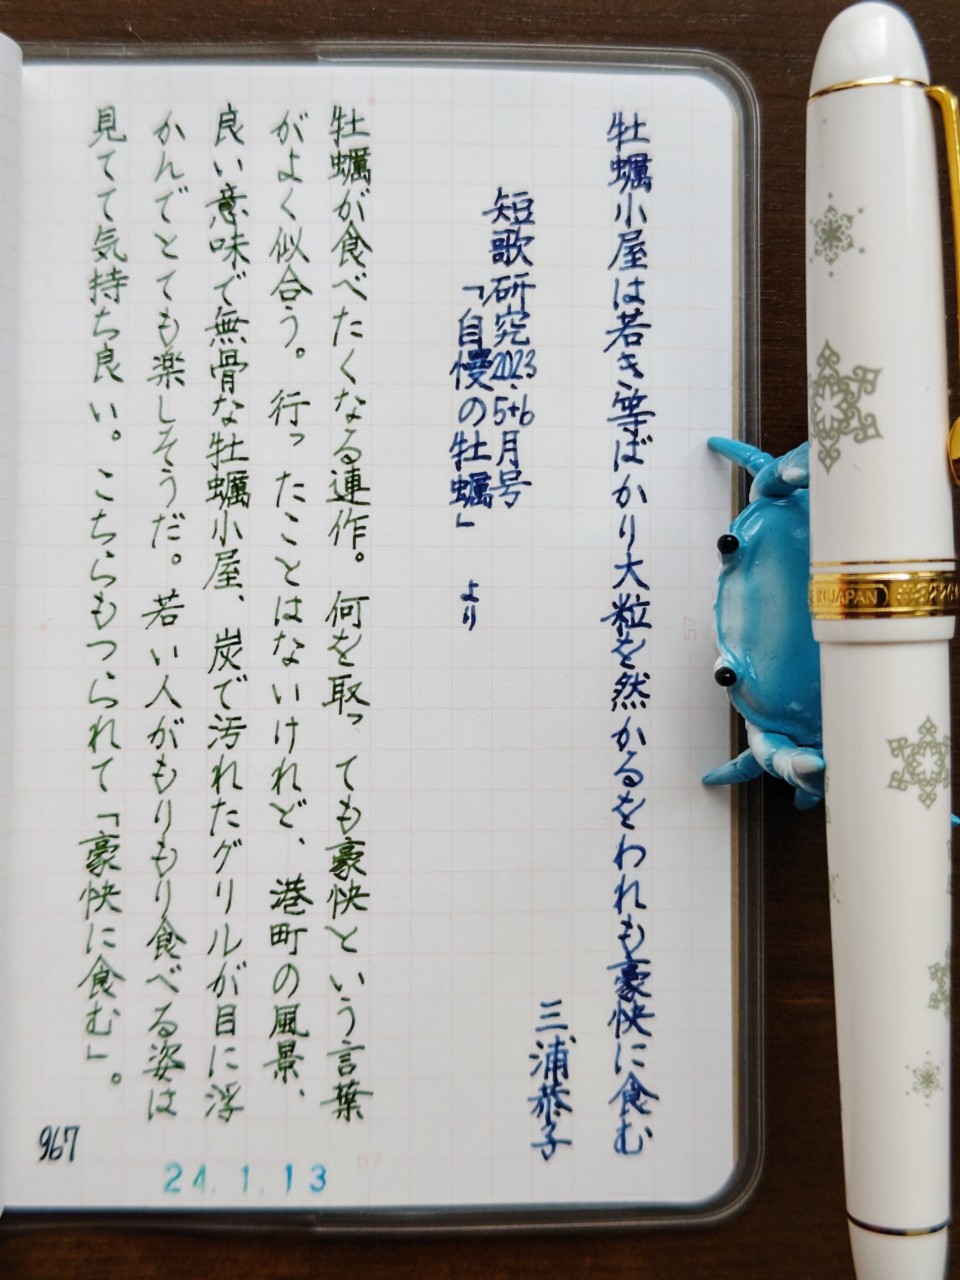 牡蠣小屋は若き等ばかり大粒を然かるをわれも豪快に食む
三浦恭子
短歌研究2023.5+6月号
「自慢の牡蠣」 より
牡蠣が食べたくなる連作。何を取っても豪快という言葉
がよく似合う。行ったことはないけれど、港町の風景、
良い意味で無骨な牡蠣小屋、炭で汚れたグリルが目に浮
かんでとても楽しそうだ。若い人がもりもり食べる姿は
見てて気持ち良い。こちらもつられて「豪快に食む」。
967
24.1.13
57
JAPAN